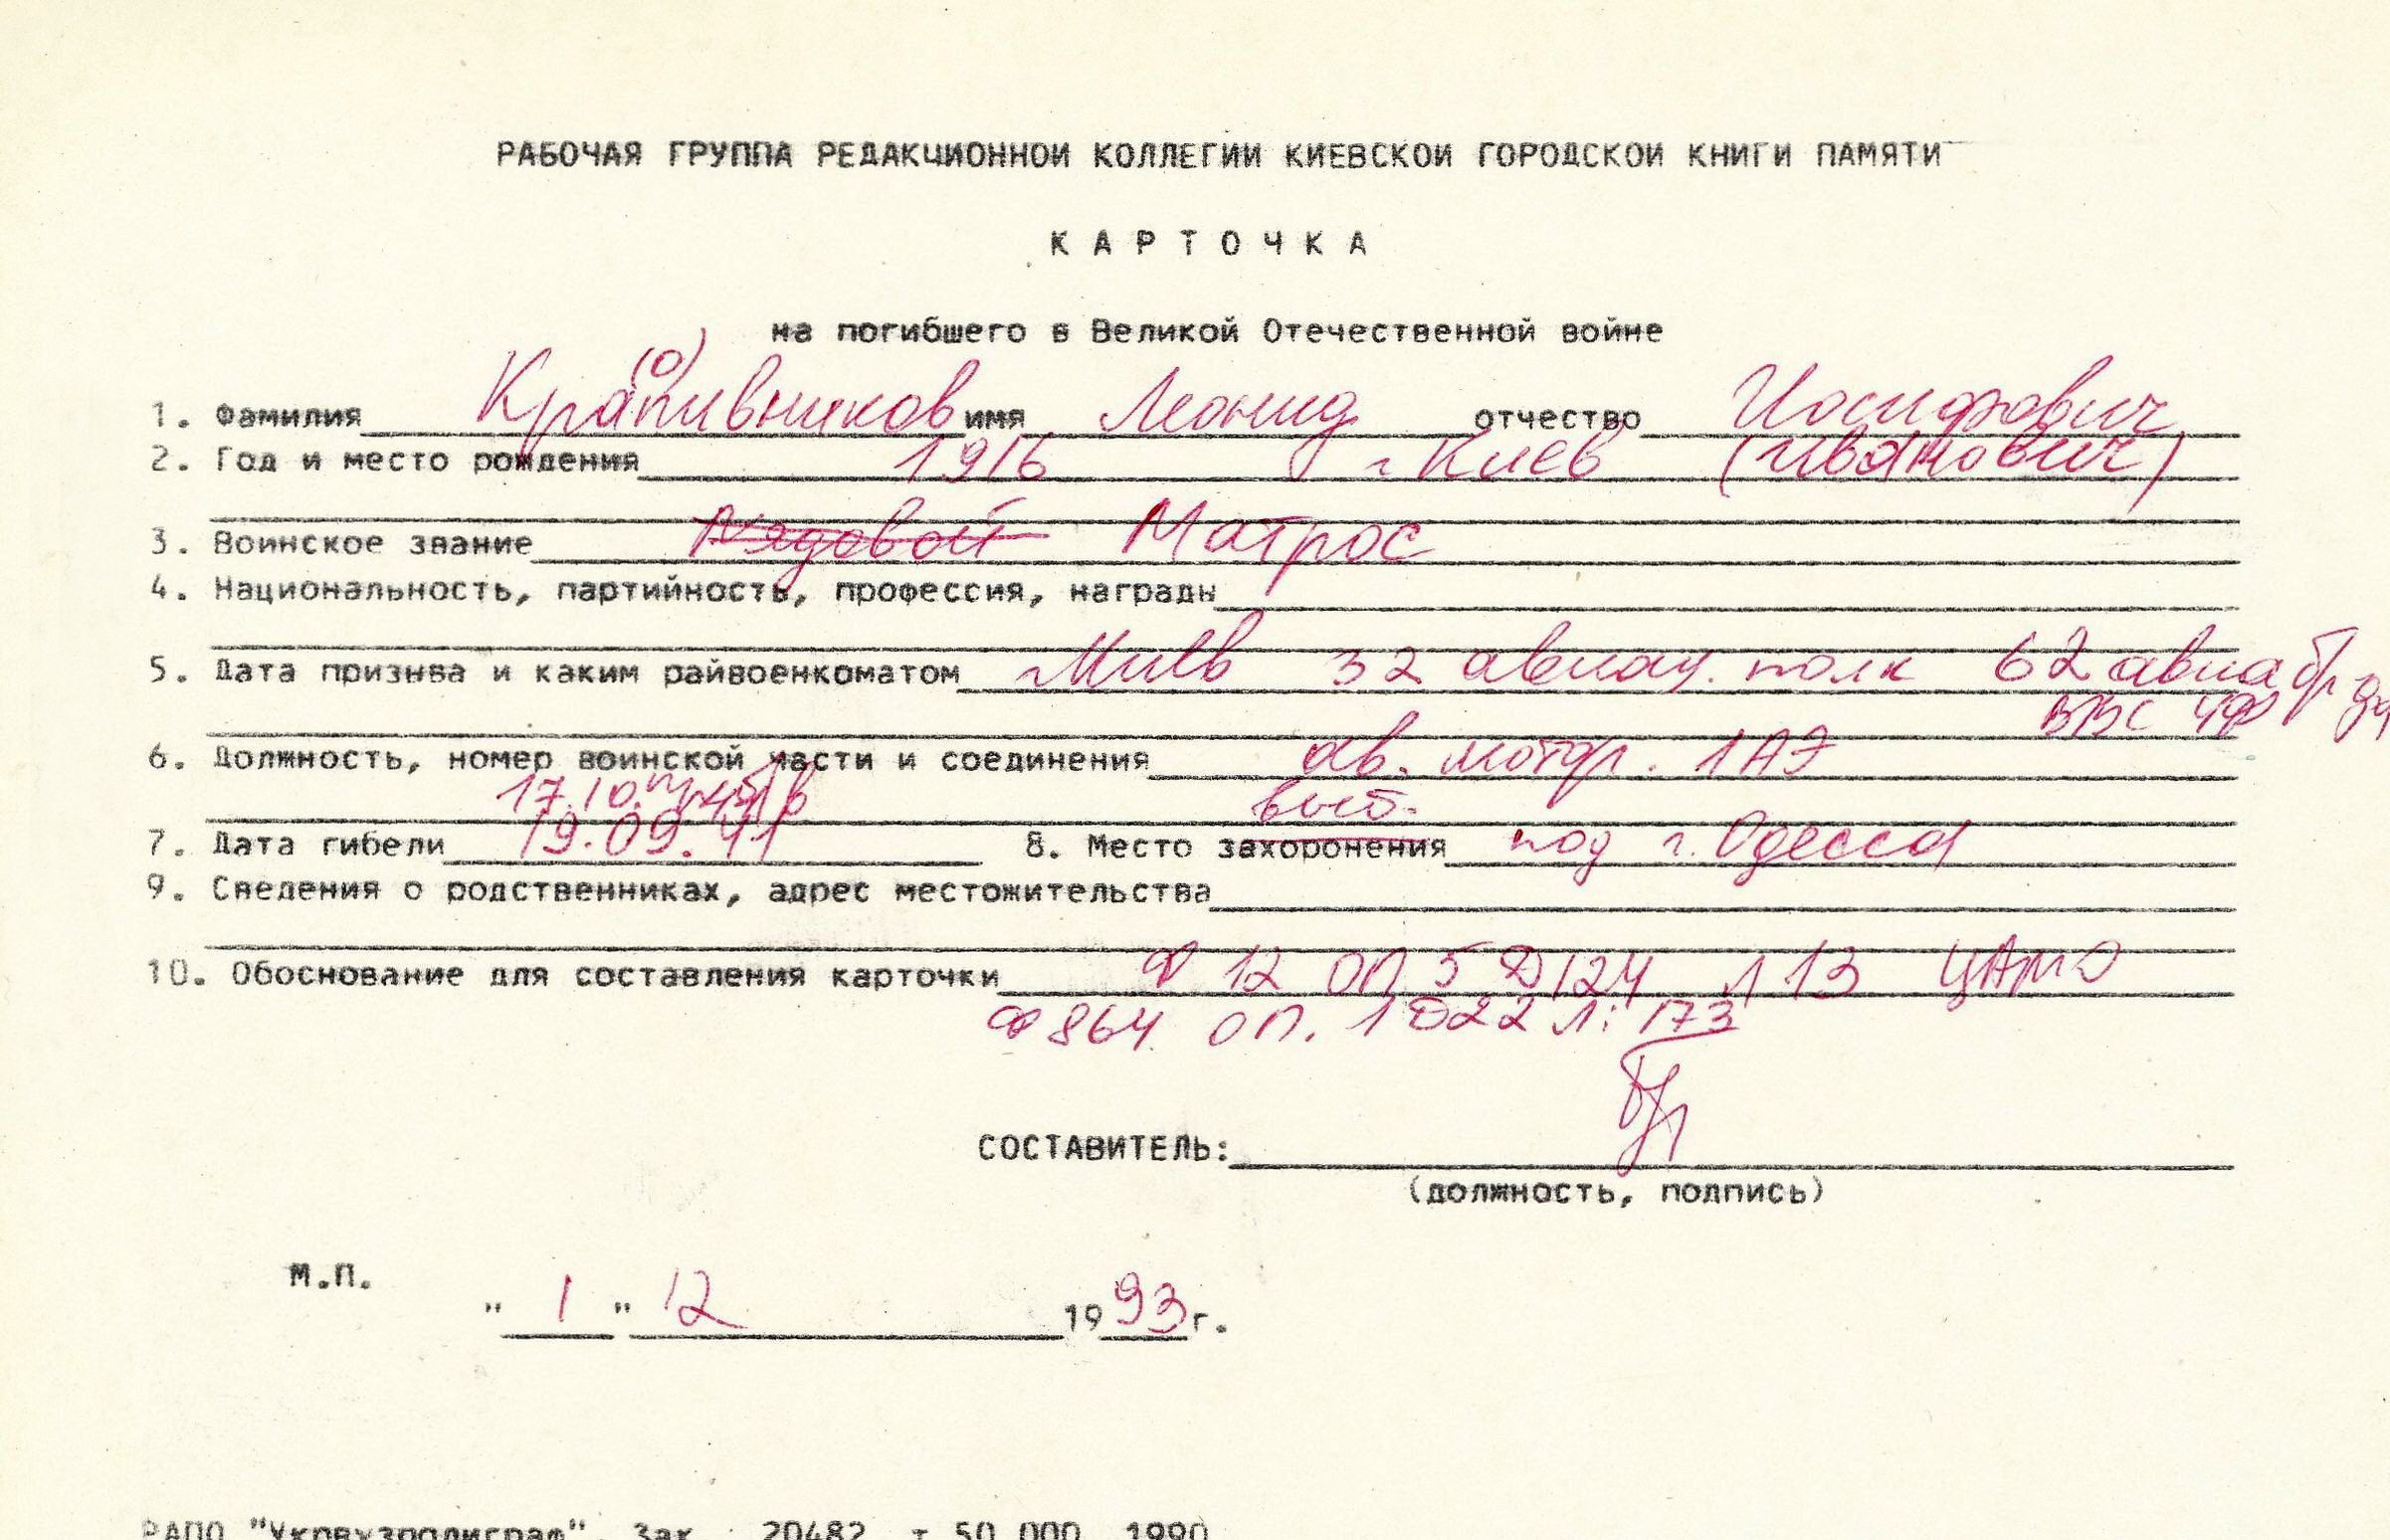 РАБОЧАЯ ГРУППА РЕДАКЦИОННОЙ КОЛЛЕГИИ КИЕВСКОЙ ГОРОДСКОЙ КНИГИ ПАМЯТИ
К А Р Т О Ч К А
на погибшего в Великой Отечественной войне
(о)
1. Фамилия Крапивников имя Леонид отчество Иосифович
2. Год и место рождения 1916 г Киев (Иванович)
3. Воинское звание Рядовой Матрос
4. Национальность, партийность, профессия, награды
5. Дата призыва и каким райвоенкоматом 32 авиац. полк 62 авиабр
ВВС ЧФ
6. Должность, номер воинской части и соединения ав. мотор. 1 АЭ
17.10.
7. Дата гибели 19.09.41 8. Место захоронения под г. Одесса
9. Сведения о родственниках, адрес местожительства
10. Обоснование для составления карточки Ф 12 ОП 5 Д 124 л 13 ЦАМО
Ф 864 ОП. 1 Д 22 Л: 173
СОСТАВИТЕЛЬ:
(должность, подпись)
М.П.
" 1 " 12 1993 г.
РАПО "Укрвузполиграф". Зак. 20482 т 50 000 1990